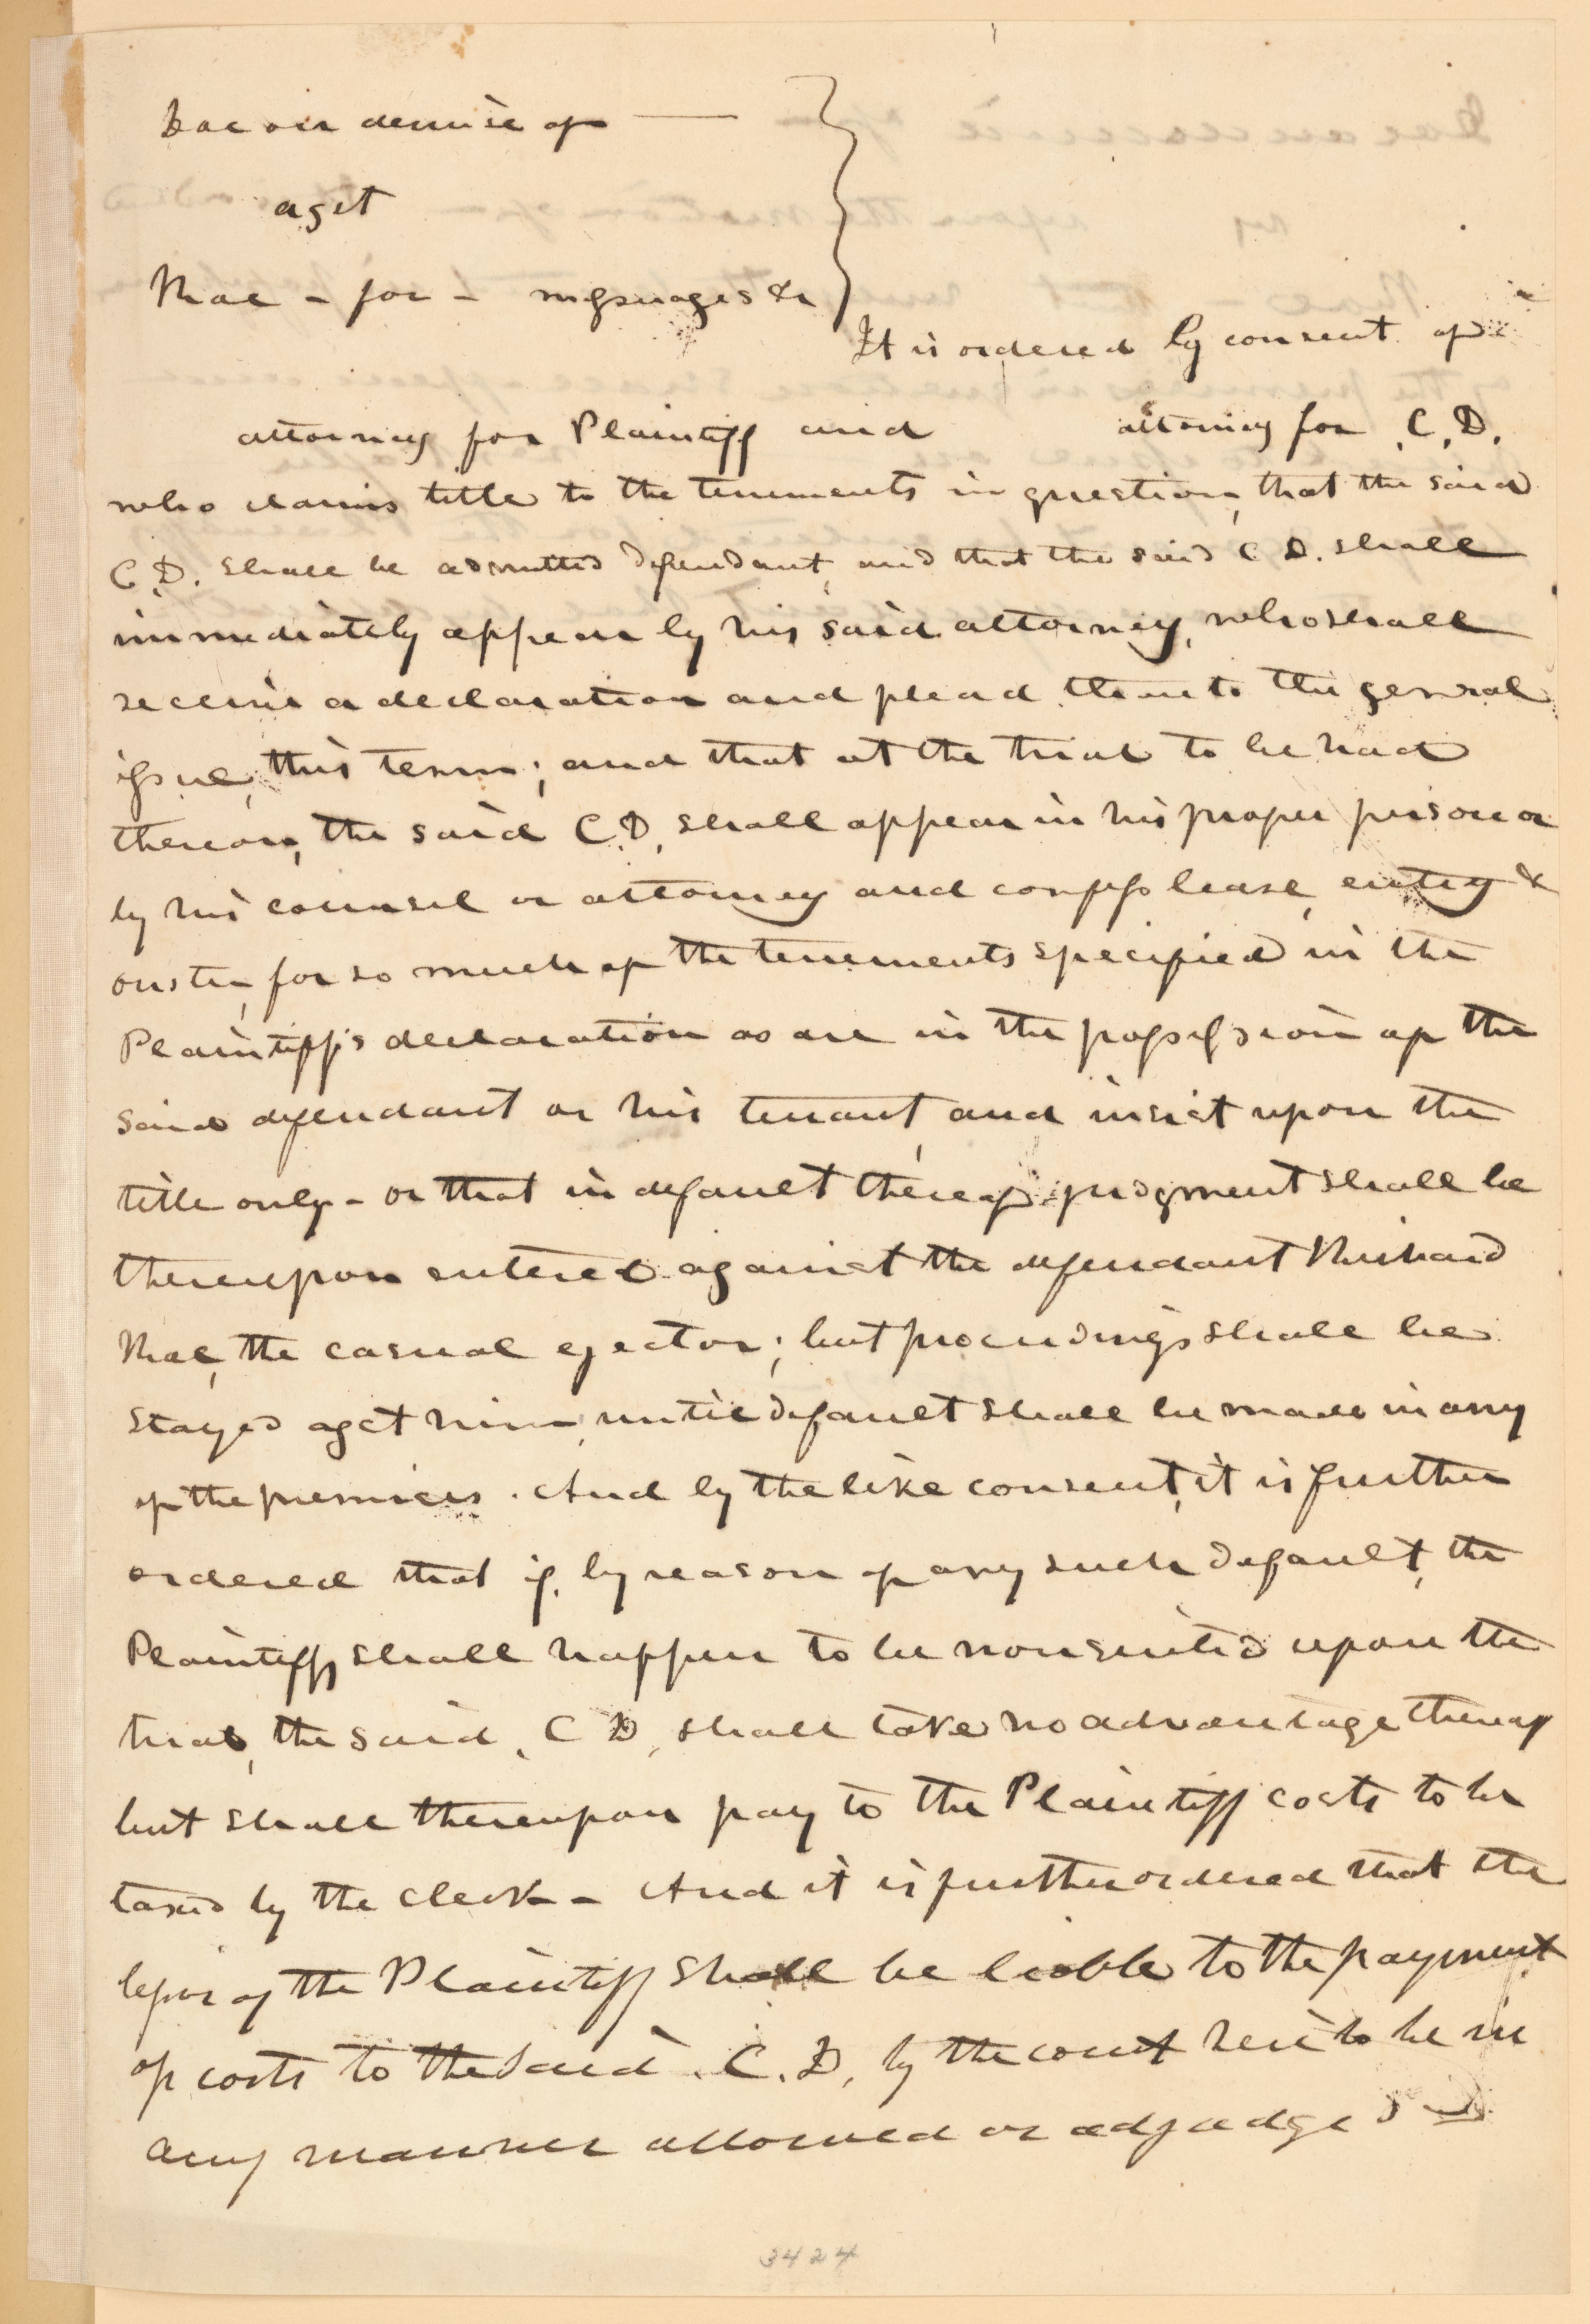 Doe on demise of —
agst
Roe – for – messuages &c
It is ordered by consent of
attorney for Plaintiff and attorney for C. D.
who claims title to the tenements in question, that the said
C. D. shall be admitted defendant, and that the said C D. shall
immediately appear by his said attorney, who shall
receive a declaration and plead thereto the general
issue, this term; and that at the trial to be had
thereon, the said C. D, shall appear in his proper person or
by his counsel or attorney and confess lease, entry &
ouster, for so much of the tenements specified in the
Plaintiff's declaration as are in the possession of the
said defendant or his tenant, and insist upon the
title only – or that in default thereof judgment shall be
thereupon entered against the defendant Richard
Roe, the casual ejector; but proceedings shall be
stayed agst him, until default shall be made in any
of the premises. And by the like consent, it is further
ordered that if, by reason of any such default, the
Plaintiff shall happen to be nonsuited upon the
trial, the said, C D, shall take no advantage thereof
but shall thereupon pay to the Plaintiff costs to be
taxed by the clerk – And it is further ordered that the
lessor of the Plaintiff shall be liable to the payment
of costs to the said C. D, by the court here to be in
any manner allowed or adjudged
3424